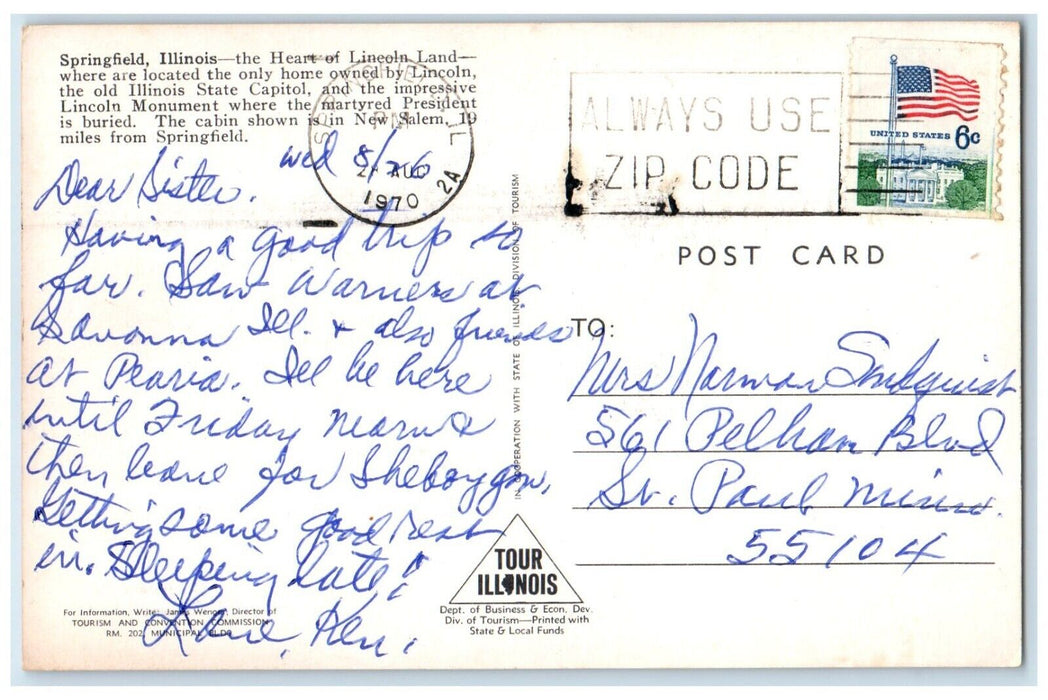 Springfield, Illinois—the Heart of Lincoln Land—
where are located the only home owned by Lincoln,
the old Illinois State Capitol, and the impressive
Lincoln Monument where the martyred President
is buried. The cabin shown is in New Salem, 19
miles from Springfield.
Wed 8/26
Dear Sister.
Having a good trip so
far. Saw Warners at
Savanna Ill. & also friends
at Pearia. I'll be here
until Friday morn &
then leave for Sheboygan,
Getting some good rest
in. Sleeping late!
Love, Ken.
For Information, Write: James Director of
TOURISM AND CONVENTION COMMISSION
RM. 202, MUNICIPAL BLDG
IN COOPERATION WITH STATE OF ILLINOIS DIVISION OF TOURISM
TOUR
ILLINOIS
Dept. of Business & Econ. Dev.
Div. of Tourism—Printed with
State & Local Funds
IL
AUG
1970
2A
ALWAYS USE
ZIP CODE
UNITED STATES 6c
POST CARD
TO:
Mrs Norman Sundquist
561 Pelham Blvd
St. Paul Minn.
55104